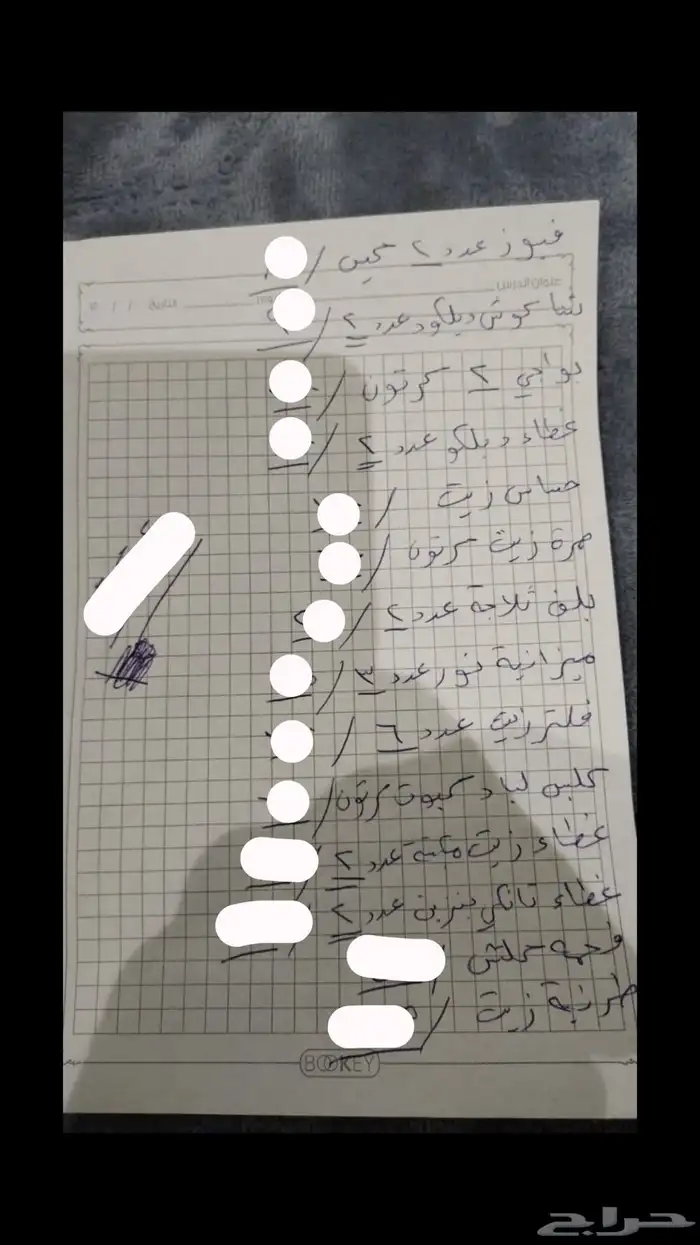 فيوز عدد ٢ كيس /
عنوان الدرس
التاريخ / /
شاكوش دبلكو عدد ٢ /
بواجي ٢ كرتون /
غطاء دبلكو عدد ٢ /
حساس زيت /
صرة زيت كرتون /
بلف ثلاجة عدد ٢ /
ميزانية نور عدد ٣ /
فلتر زيت عدد ٦ /
كلبس لباد كبوت كرتون /
غطاء زيت مكينة عدد ٢ /
غطاء تانكي بنزين عدد ٢ /
وجهه كلتش
طرنبة زيت /
BOOKEY
حراج